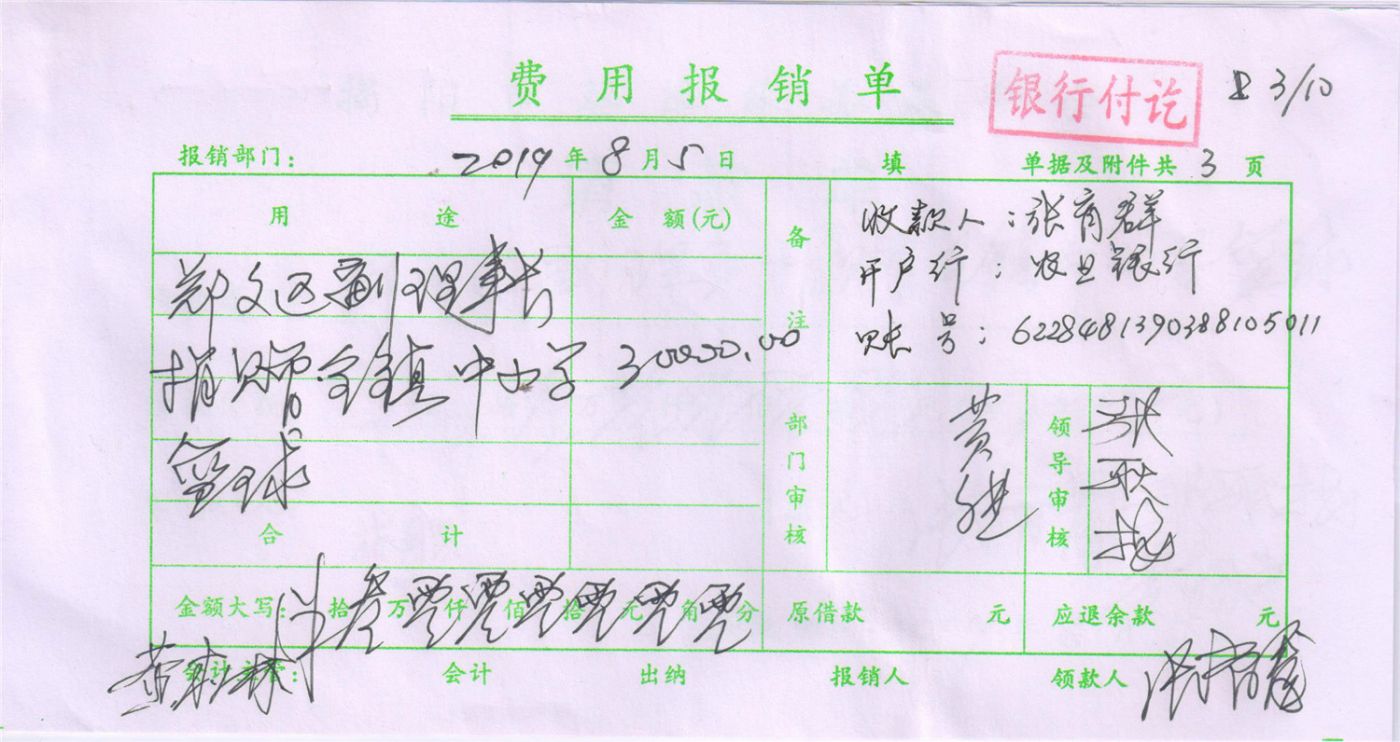 费用报销单
银行付讫
3/10
报销部门： 2019年8月5日 填 单据及附件共3页
用途 金额(元) 备注
收款人：张育群
开户行：农业银行
账号：6228481390388105011
郑文 副理事长
捐赠 镇中小学 30000.00
篮球
部门审核 黄 领导审核 张
合计
金额大写： 拾叁万零仟零佰零拾零元零角零分 原借款 元 应退余款 元
会计主管： 会计 出纳 报销人 领款人